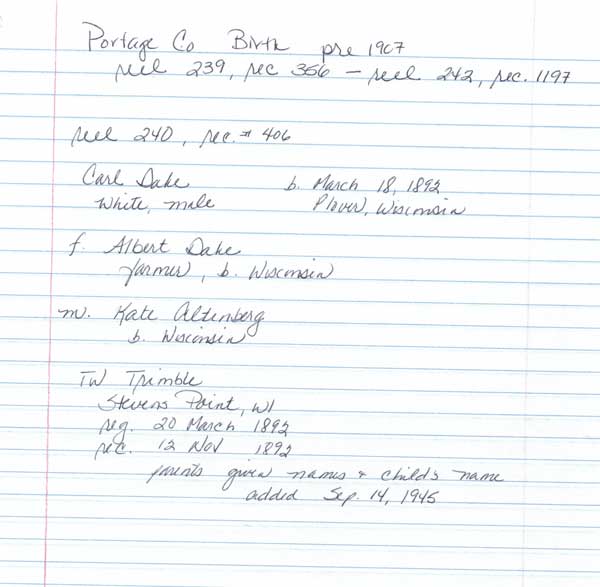 Portage Co Birth pre 1907
reel 239, rec 356 – reel 242, rec. 1197
reel 240, rec. # 406
Carl Dake b. March 18, 1892
White, male Plover, Wisconsin
f. Albert Dake
farmer, b. Wisconsin
m. Kate Altenberg
b. Wisconsin
TW Trimble
Stevens Point, WI
reg. 20 March 1892
rec. 12 Nov 1892
parents given names & child's name
added Sep. 14, 1945